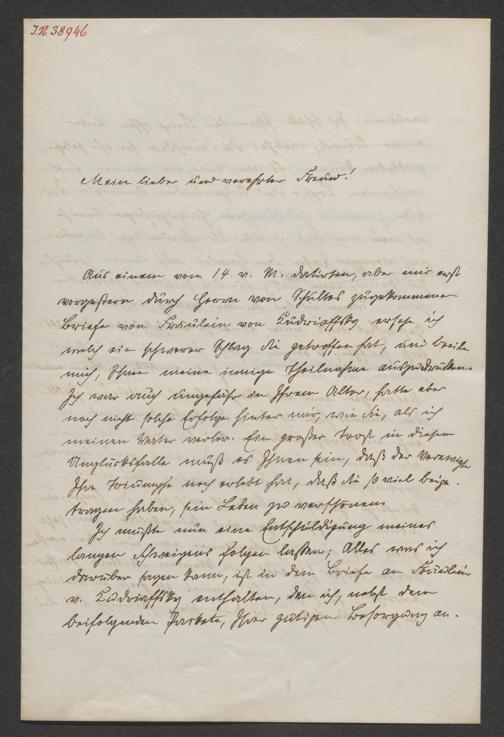 I.N. 38946
Mein lieber und verehrter Freund!
Aus einem vom 14. v. M. datirten, aber mir erst
vorgestern durch Herrn von Schultes zugekommenen
Briefe von Fräulein von Kudriaffsky ersehe ich
welch ein schwerer Schlag Sie getroffen hat, und beeile
mich, Ihnen meine innige Theilnahme auszudrücken.
Ich war auch ungefähr in Ihrem Alter, hatte aber
noch nicht solche Erfolge hinter mir, wie Sie, als ich
meinen Vater verlor. Ein großer Trost in diesem
Unglücksfalle muß es Ihnen sein, daß der Verewigte
Ihre Triumphe noch erlebt hat, daß Sie so viel beige-
tragen haben, sein Leben zu verschönen.
Ich müßte nun eine Entschuldigung meines
langen Schweigens folgen lassen; Alles was ich
darüber sagen kann, ist in dem Briefe an Fräulein
v. Kudriaffsky enthalten, den ich, nebst dem
beifolgenden Packete, Ihrer gütigen Besorgung an-